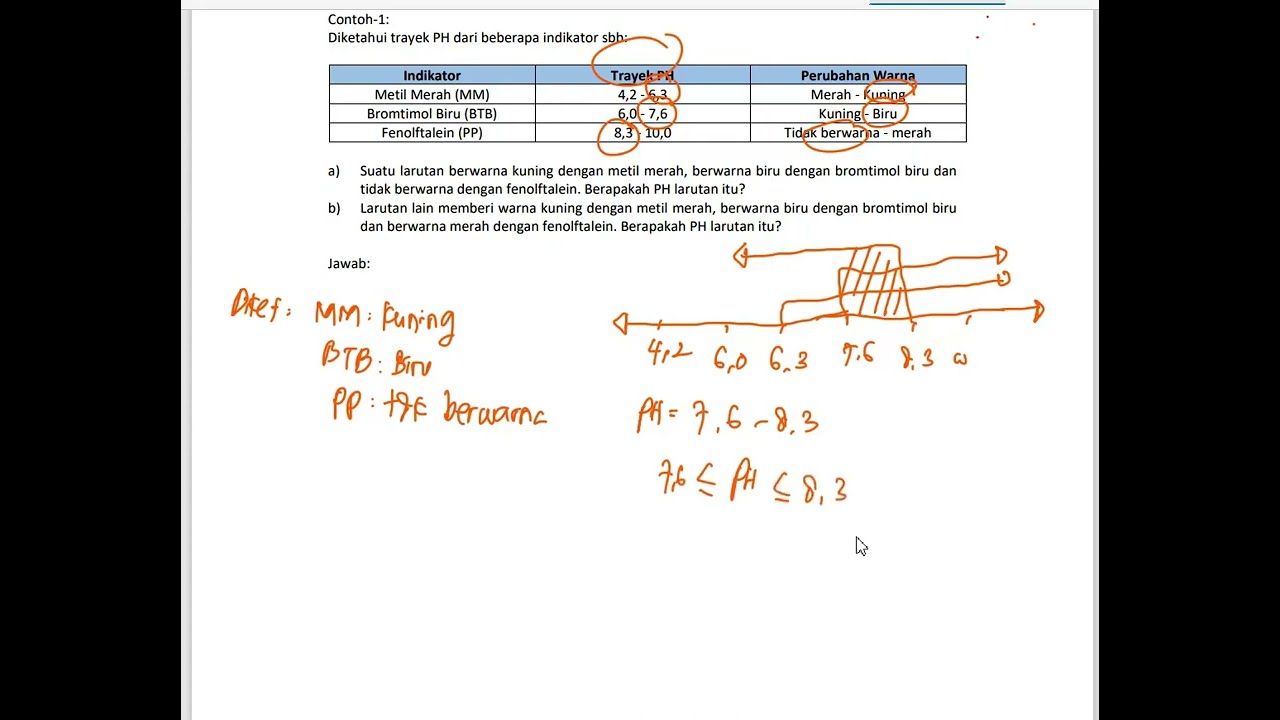 Contoh-1:
Diketahui trayek PH dari beberapa indikator sbb:
Indikator Trayek PH Perubahan Warna
Metil Merah (MM) 4,2 - 6,3 Merah - Kuning
Bromtimol Biru (BTB) 6,0 - 7,6 Kuning - Biru
Fenolftalein (PP) 8,3 - 10,0 Tidak berwarna - merah
a) Suatu larutan berwarna kuning dengan metil merah, berwarna biru dengan bromtimol biru dan
tidak berwarna dengan fenolftalein. Berapakah PH larutan itu?
b) Larutan lain memberi warna kuning dengan metil merah, berwarna biru dengan bromtimol biru
dan berwarna merah dengan fenolftalein. Berapakah PH larutan itu?
Jawab:
MM : Kuning
BTB : Biru
PP : berwarna
4,2 6,0 6,3 7,6 8,3
PH = 7,6 - 8,3
7,6 ≤ PH ≤ 8,3